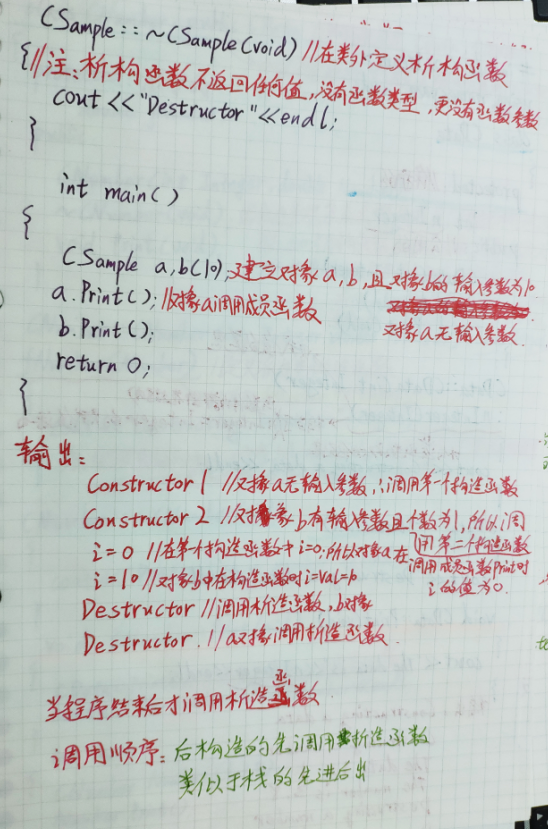 CSample::~CSample(void) //在类外定义析构函数
{//注:析构函数不返回任何值,没有函数类型,更没有函数参数
cout<<"Destructor"<<endl;
}
int main()
{
CSample a,b(10);建立对象a,b,且对象b的输入参数为10
a.Print(); //对象a调用成员函数
对象a无输入参数.
b.Print();
return 0;
}
输出:
Constructor 1 //对象a无输入参数,∴调用第一个构造函数
Constructor 2 //对象b有输入参数且个数为1,所以调
用第二个构造函数
i=0 //在第一个构造函数中i=0,所以对象a在
调用成员函数Print时
i的值为0.
i=10 //对象b中在构造函数时i=val=10
Destructor //调用析造函数,b对象
Destructor. //a对象调用析造函数.
当程序结束后才调用析造函数
调用顺序:后构造的先调用析造函数
类似于栈的先进后出